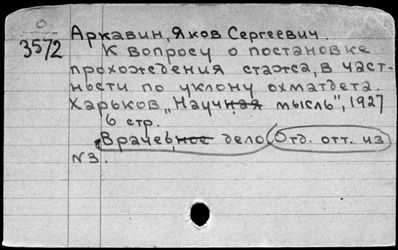 0
3572
Аркавин, Яков Сергеевич.
К вопросу о постановке
прохождения стажа, в част-
ности по уклону охматдета.
Харьков, „Научная мысль", 1927
6 стр.
Врачебное дело, Отд. отт. из
N3.